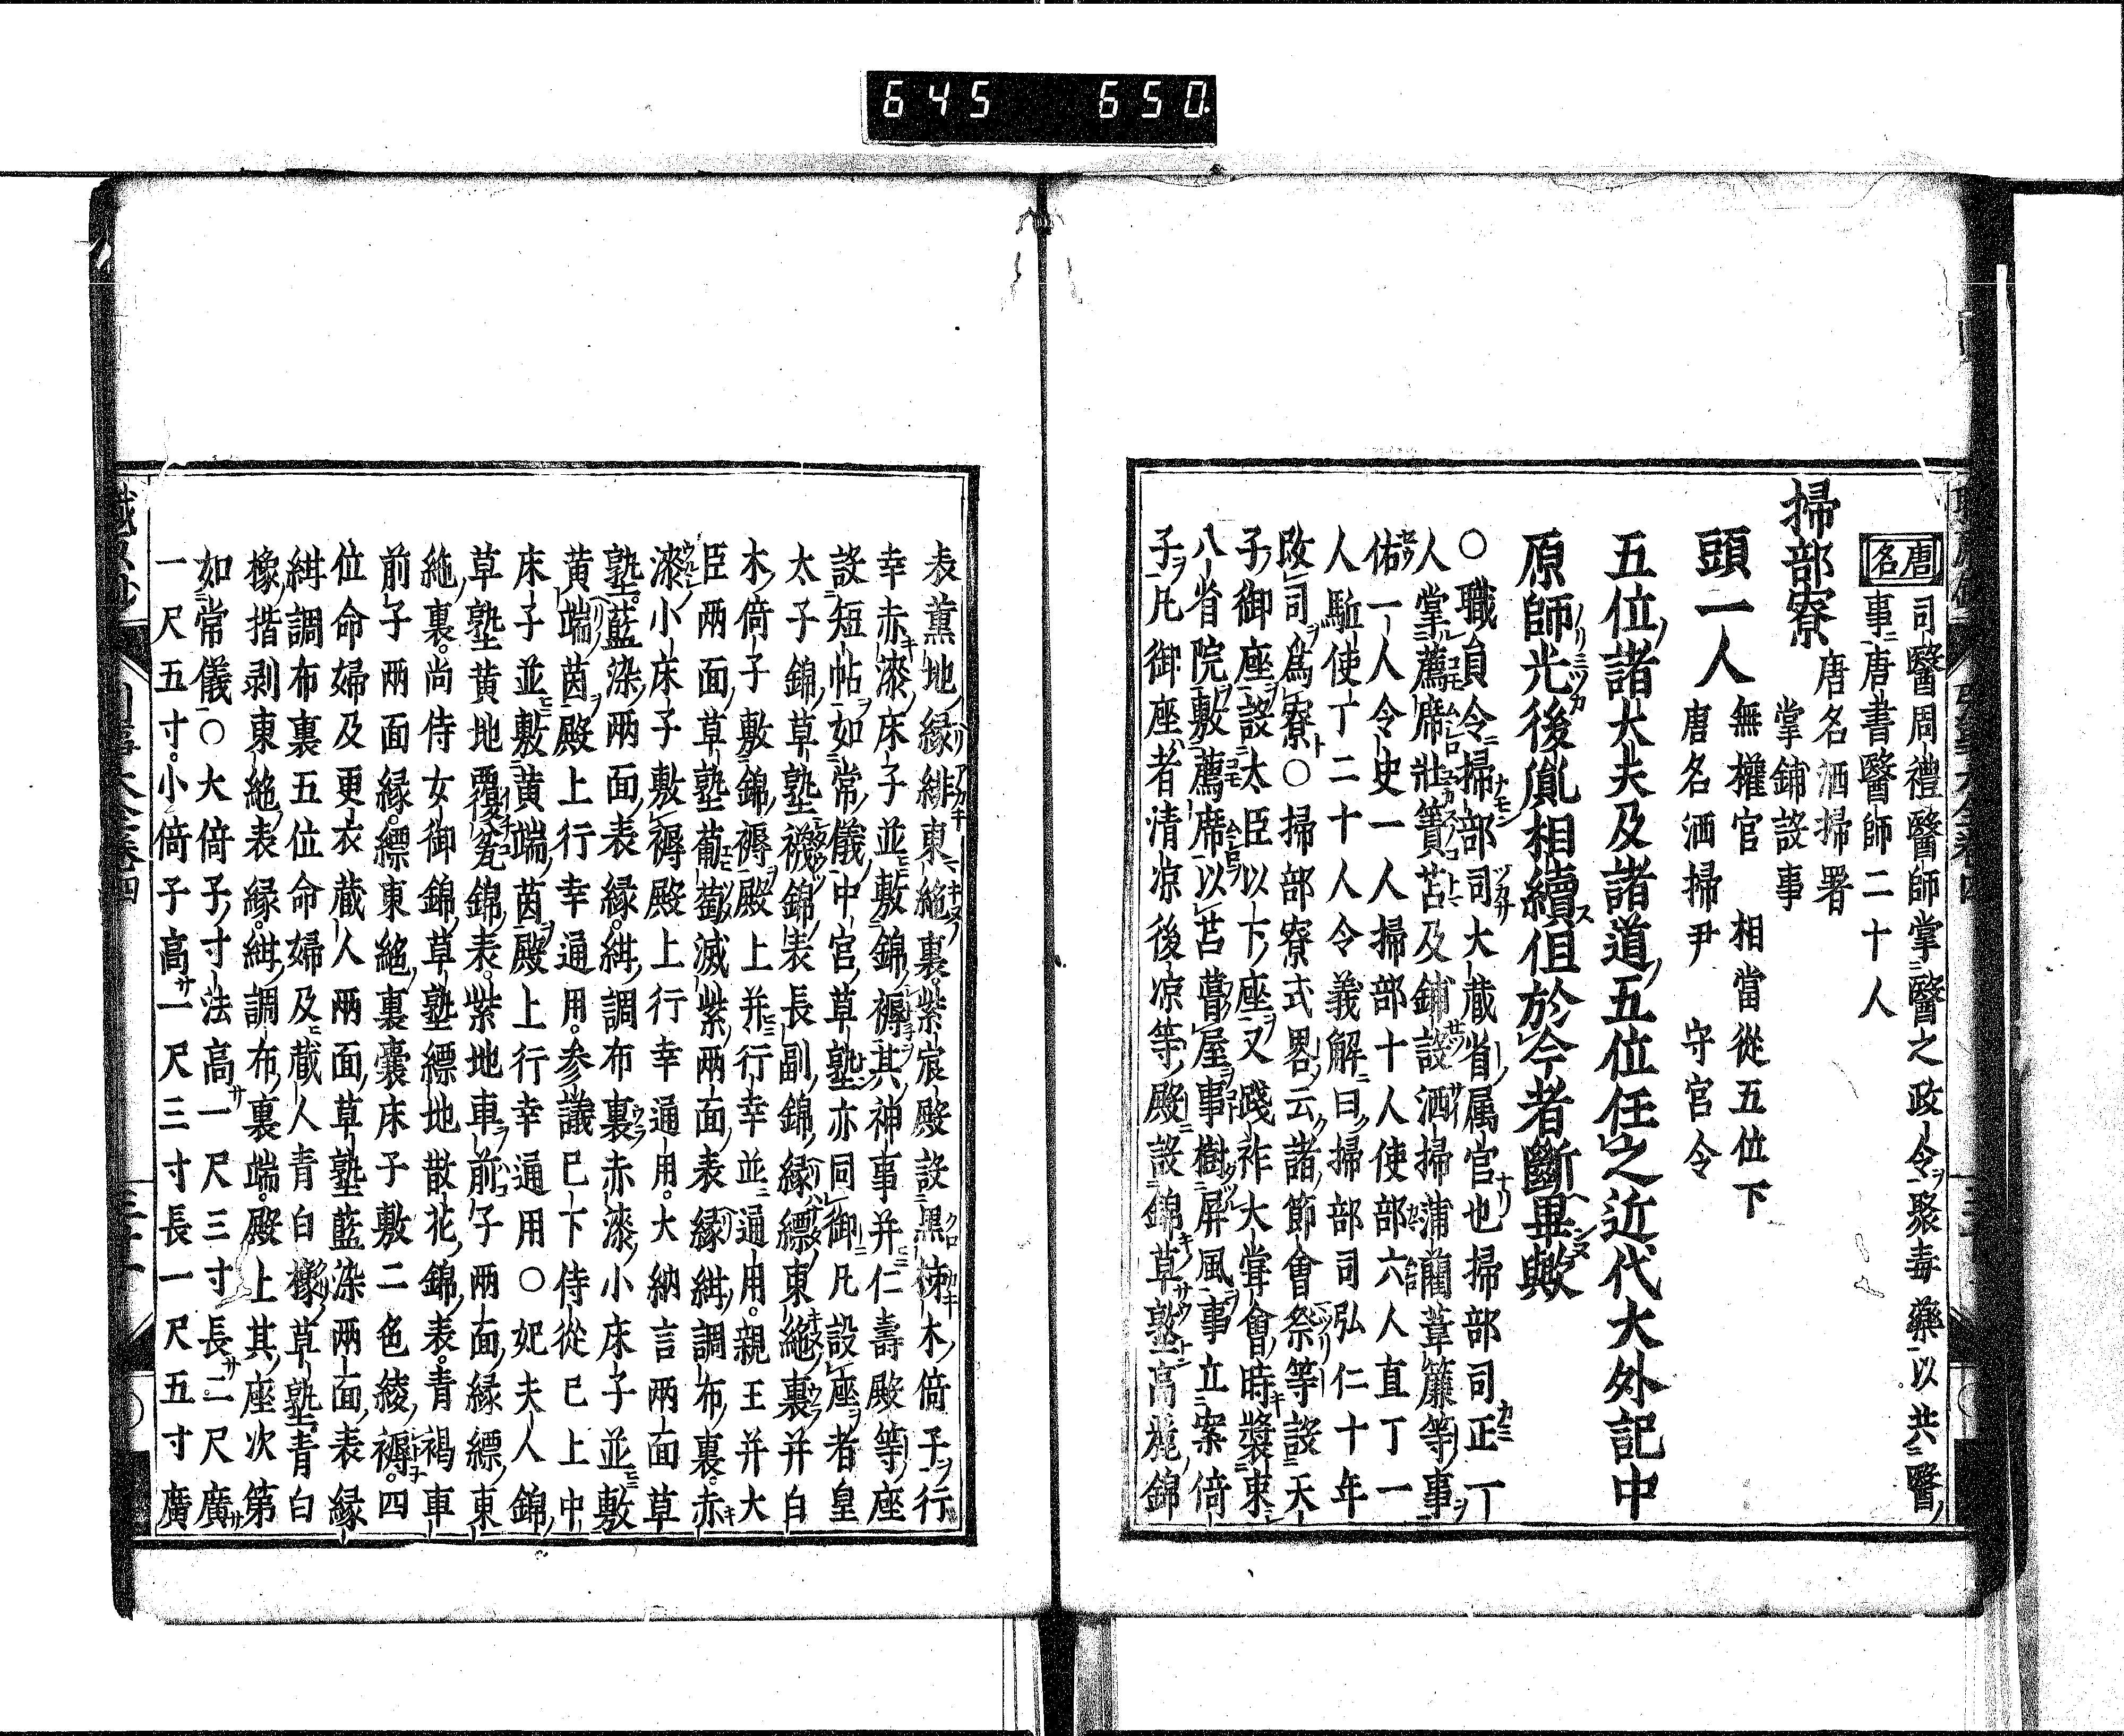 645 650
唐名
司醫周禮醫師掌醫之政令聚毒藥以共醫
事唐書醫師二十人
掃部寮
唐名洒掃署
掌鋪設事
頭一人
無權官 相當從五位下
唐名洒掃尹 守宮令
五位諸大夫及諸道五位任之近代大外記中
原師光後胤相續但於今者斷畢歟
○職員令掃部司大藏省属官也掃部司正一
人掌薦席壮簀苫及鋪設洒掃蒲藺葦簾等事
佑一人令史一人掃部十人使部六人直丁一
人駈使丁二十人令義解曰掃部司弘仁十年
改司爲寮○掃部寮式畧云諸節會祭等設天
子御座設太臣以下座又踐祚大甞會時裝束
八省院敷薦席以苫蔶屋事樹屏風事立案倚
子凡御座者清凉後凉等殿設錦草塾高麗錦
表薫地縁緋東絁裏紫宸殿設黒柿木倚子行
幸赤漆床子並敷錦褥其神事并仁壽殿等座
設短帖如常儀中宮草塾亦同御凡設座者皇
太子錦草塾襪錦表長副錦縁縹東絁裏并白
木倚子敷錦褥殿上并行幸並通用親王并大
臣兩面草塾葡萄滅紫兩面表縁紺調布裏赤
漆小床子敷褥殿上行幸通用大納言兩面草
塾藍染兩面表縁紺調布裏赤漆小床子並敷
黄端茵殿上行幸通用参議已下侍從已上中
床子並敷黄端茵殿上行幸通用○妃夫人錦
草塾黄地覆瓮錦表紫地車前子兩面縁縹東
絁裏尚侍女御錦草塾縹地散花錦表青褐車
前子兩面縁縹東絁裏嚢床子敷二色綾褥四
位命婦及更衣蔵人兩面草塾藍染兩面表縁
紺調布裏五位命婦及蔵人青白橡草塾青白
橡揩剥東絁表縁紺調布裏端殿上其座次第
如常儀○大倚子寸法高一尺三寸長二尺廣
一尺五寸小倚子高一尺三寸長一尺五寸廣